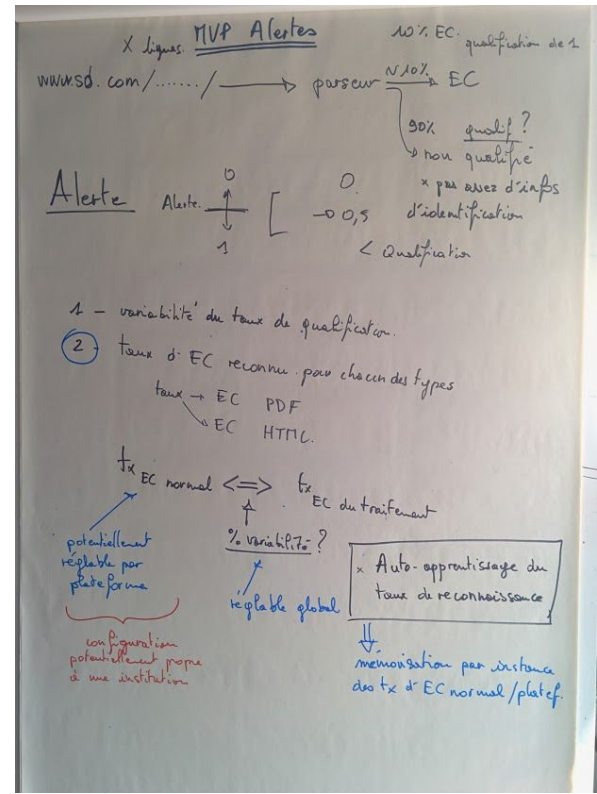 MVP Alertes
X lignes.
10% EC. qualification de 1
www.sd.com/......./ → parseur ~10% → EC
90% qualif?
→ non qualifié
* pas assez d'infos d'identification
Alerte
Alerte. 0 ↑ ↓ 1 [ 0. → 0,5
< Qualification
1 - variabilité du taux de qualification.
2 - taux d'EC reconnu pour chacun des types
taux → EC PDF
→ EC HTML.
tx EC normal <=> tx EC du traitement
% variabilité ?
potentiellement
réglable par
plateforme
réglable global
configuration
potentiellement propre
à une institution
* Auto-apprentissage du
taux de reconnaissance
mémorisation par instance
des tx d'EC normal/platef.